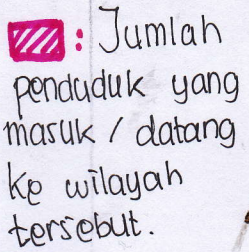 : Jumlah
penduduk yang
masuk / datang
ke wilayah
tersebut.